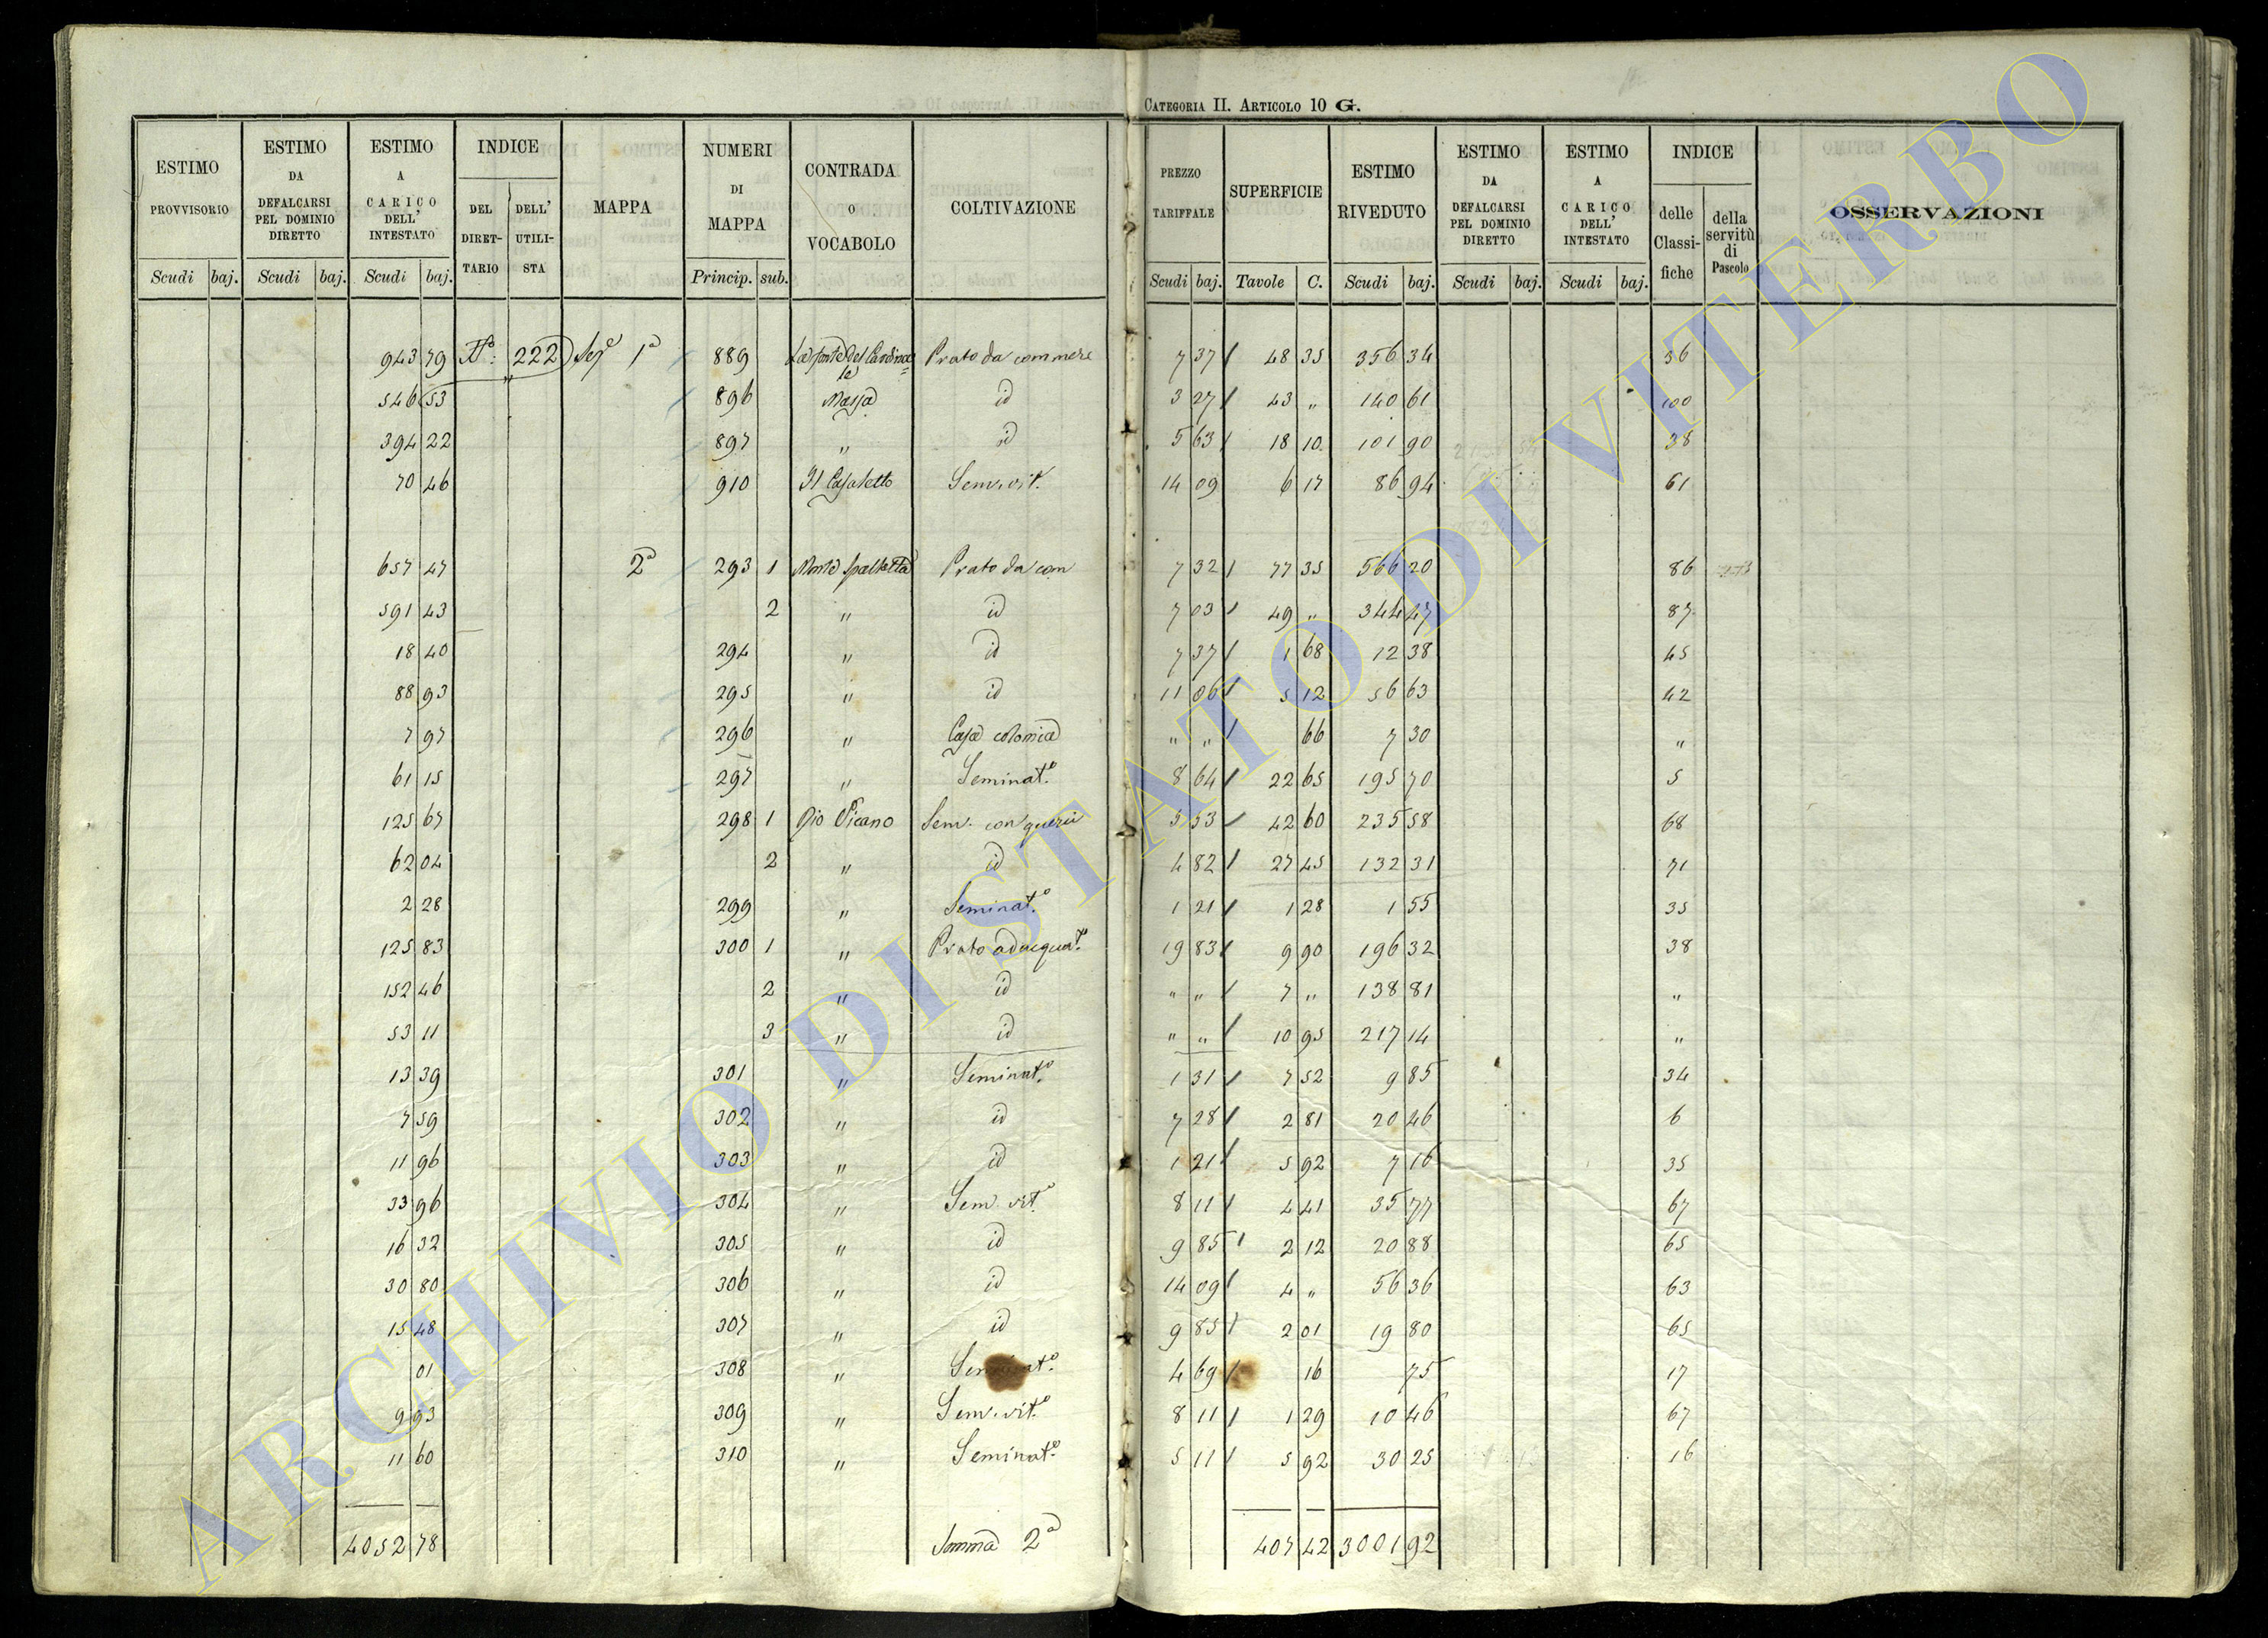 CATEGORIA II. ARTICOLO 10 G.
ESTIMO PROVVISORIO Scudi baj.
ESTIMO DA DEFALCARSI PEL DOMINIO DIRETTO Scudi baj.
ESTIMO A CARICO DELL' INTESTATO Scudi baj.
INDICE DEL DIRET-TARIO DELL' UTILI-STA
MAPPA
NUMERI DI MAPPA Princip. sub.
CONTRADA O VOCABOLO
COLTIVAZIONE
PREZZO TARIFFALE Scudi baj.
SUPERFICIE Tavole C.
ESTIMO RIVEDUTO Scudi baj.
ESTIMO DA DEFALCARSI PEL DOMINIO DIRETTO Scudi baj.
ESTIMO A CARICO DELL' INTESTATO Scudi baj.
INDICE delle Classi-fiche della servitù di Pascolo
OSSERVAZIONI
943 79 222 Sez 1a 889 La fonte del Cardinale Prato da commere 7 37 48 35 356 34 36
546 53 896 Massa id 3 27 43 " 140 61 100
394 22 897 " id 5 63 18 10 101 90 38
70 46 910 Il Casaletto Sem. vit. 14 09 6 17 86 94 61
657 47 2a 293 1 Monte Prato da com 7 32 77 35 566 20 86
591 43 2 " id 7 03 49 " 344 47 87
18 40 294 " id 7 37 1 68 12 38 45
88 93 295 " id 11 06 5 12 56 63 42
7 97 296 " Casa colonica " " 66 7 30 "
61 15 297 " Seminato 8 64 22 65 195 70 5
125 67 298 1 Rio Vicano Sem. con querci 5 53 42 60 235 58 68
62 04 2 " id 4 82 27 45 132 31 71
2 28 299 " Seminato 1 21 1 28 1 55 35
125 83 300 1 " Prato adacquato 19 83 9 90 196 32 38
152 46 2 " id " " 7 " 138 81 "
53 11 3 " id " " 10 95 217 14 "
13 39 301 " Seminato 1 31 7 52 9 85 34
7 59 302 " id 7 28 2 81 20 46 6
11 96 303 " id 1 21 5 92 7 16 35
33 96 304 " Sem. vit. 8 11 4 41 35 77 67
16 32 305 " id 9 85 2 12 20 88 65
30 80 306 " id 14 09 4 " 56 36 63
15 48 307 " id 9 85 2 01 19 80 65
01 308 " Seminato 4 69 16 75 17
9 93 309 " Sem. vit. 8 11 1 29 10 46 67
11 60 310 " Seminato 5 11 5 92 30 25 16
4052 78 Somma 2a 407 42 3001 92
ARCHIVIO DI STATO DI VITERBO